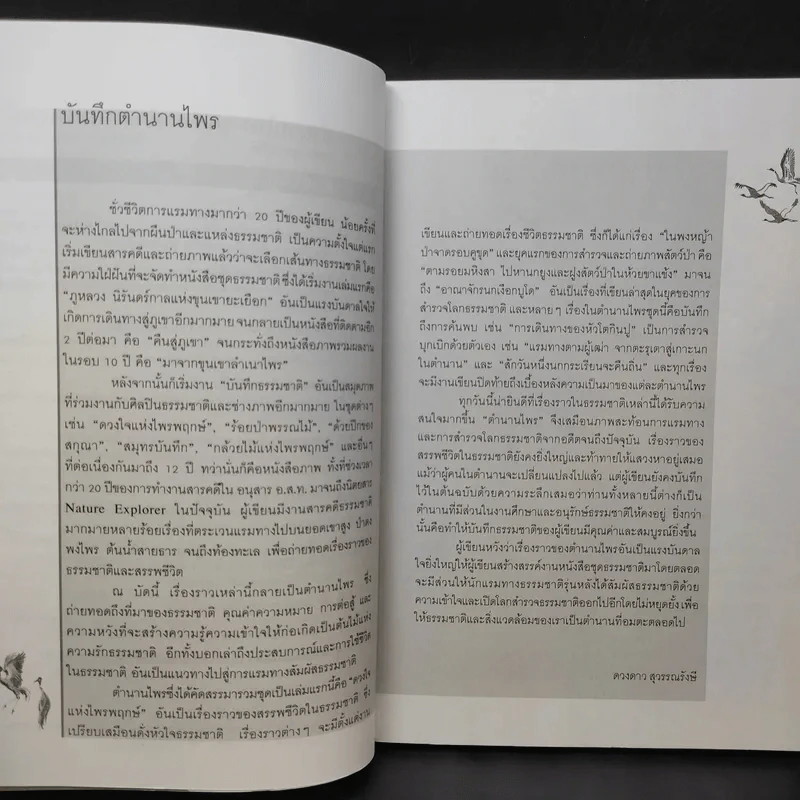 บันทึกตำนานไพร
ชั่วชีวิตการแรมทางมากว่า 20 ปีของผู้เขียน น้อยครั้งที่
จะห่างไกลไปจากผืนป่าและแหล่งธรรมชาติ เป็นความตั้งใจแต่แรก
เริ่มเขียนสารคดีและถ่ายภาพแล้วว่าจะเลือกเส้นทางธรรมชาติ โดย
มีความใฝ่ฝันที่จะจัดทำหนังสือชุดธรรมชาติ ซึ่งได้เริ่มงานเล่มแรกคือ
"ภูหลวง นิรันดร์กาลแห่งขุนเขายะเยือก" อันเป็นแรงบันดาลใจให้
เกิดการเดินทางสู่ภูเขาอีกมากมาย จนกลายเป็นหนังสือที่ติดตามอีก
2 ปีต่อมา คือ "คืนสู่ภูเขา" จนกระทั่งถึงหนังสือภาพรวมผลงาน
ในรอบ 10 ปี คือ "มาจากขุนเขาลำเนาไพร"
หลังจากนั้นก็เริ่มงาน "บันทึกธรรมชาติ" อันเป็นสมุดภาพ
ที่ร่วมงานกับศิลปินธรรมชาติและช่างภาพอีกมากมาย ในชุดต่างๆ
เช่น "ดวงใจแห่งไพรพฤกษ์", "ร้อยป่าพรรณไม้", "ด้วยปีกของ
สกุณา", "สมุทรบันทึก", "กล้วยไม้แห่งไพรพฤกษ์" และอื่นๆ
ที่ต่อเนื่องกันมาถึง 12 ปี ทว่านั่นก็คือหนังสือภาพ ทั้งที่ช่วงเวลา
กว่า 20 ปีของการทำงานสารคดีใน อนุสาร อ.ส.ท. มาจนถึงนิตยสาร
Nature Explorer ในปัจจุบัน ผู้เขียนมีงานสารคดีธรรมชาติ
มากมายหลายร้อยเรื่องที่ตระเวนแรมทางไปบนยอดเขาสูง ป่าดง
พงไพร ต้นน้ำสายธาร จนถึงท้องทะเล เพื่อถ่ายทอดเรื่องราวของ
ธรรมชาติและสรรพชีวิต
ณ บัดนี้ เรื่องราวเหล่านี้กลายเป็นตำนานไพร ซึ่ง
ถ่ายทอดถึงที่มาของธรรมชาติ คุณค่าความหมาย การต่อสู้ และ
ความหวังที่จะสร้างความรู้ความเข้าใจให้ก่อเกิดเป็นต้นไม้แห่ง
ความรักธรรมชาติ อีกทั้งบอกเล่าถึงประสบการณ์และการใช้ชีวิต
ในธรรมชาติ อันเป็นแนวทางไปสู่การแรมทางสัมผัสธรรมชาติ
ตำนานไพรซึ่งได้คัดสรรมารวมชุดเป็นเล่มแรกนี้คือ "ดวงใจ
แห่งไพรพฤกษ์" อันเป็นเรื่องราวของสรรพชีวิตในธรรมชาติ ซึ่ง
เปรียบเสมือนดั่งหัวใจธรรมชาติ เรื่องราวต่างๆ จะมีตั้งแต่งาน
เขียนและถ่ายทอดเรื่องชีวิตธรรมชาติ ซึ่งก็ได้แก่เรื่อง "ในพงหญ้า
ป่าจาดรอบคูขุด" และยุคแรกของการสำรวจและถ่ายภาพสัตว์ป่า คือ
"ตามรอยมหิงสา ไปหานกยูงและฝูงสัตว์ป่าในห้วยขาแข้ง" มาจน
ถึง "อาณาจักรนกเงือกบูโด" อันเป็นเรื่องที่เขียนล่าสุดในยุคของการ
สำรวจโลกธรรมชาติ และหลายๆ เรื่องในตำนานไพรชุดนี้คือบันทึก
ถึงการค้นพบ เช่น "การเดินทางของหัวโตกินปู" เป็นการสำรวจ
บุกเบิกด้วยตัวเอง เช่น "แรมทางตามผู้เฒ่า จากตะรุเตาสู่เกาะนก
ในตำนาน" และ "สักวันหนึ่งนกกระเรียนจะคืนถิ่น" และทุกเรื่อง
จะมีงานเขียนปิดท้ายถึงเบื้องหลังความเป็นมาของแต่ละตำนานไพร
ทุกวันนี้น่ายินดีที่เรื่องราวในธรรมชาติเหล่านี้ได้รับความ
สนใจมากขึ้น "ตำนานไพร" จึงเสมือนภาพสะท้อนการแรมทาง
และการสำรวจโลกธรรมชาติจากอดีตจนถึงปัจจุบัน เรื่องราวของ
สรรพชีวิตในธรรมชาติยังคงยิ่งใหญ่และท้าทายให้แสวงหาอยู่เสมอ
แม้ว่าผู้คนในตำนานจะเปลี่ยนแปลงไปแล้ว แต่ผู้เขียนยังคงบันทึก
ไว้ในต้นฉบับด้วยความระลึกเสมอว่าท่านทั้งหลายนี้ต่างก็เป็น
ตำนานที่มีส่วนในงานศึกษาและอนุรักษ์ธรรมชาติให้คงอยู่ ยิ่งกว่า
นั้นคือทำให้บันทึกธรรมชาติของผู้เขียนมีคุณค่าและสมบูรณ์ยิ่งขึ้น
ผู้เขียนหวังว่าเรื่องราวของตำนานไพรอันเป็นแรงบันดาล
ใจยิ่งใหญ่ให้ผู้เขียนสร้างสรรค์งานหนังสือชุดธรรมชาติมาโดยตลอด
จะมีส่วนให้นักแรมทางธรรมชาติรุ่นหลังได้สัมผัสธรรมชาติด้วย
ความเข้าใจและเปิดโลกสำรวจธรรมชาติออกไปอีกโดยไม่หยุดยั้ง เพื่อ
ให้ธรรมชาติและสิ่งแวดล้อมของเราเป็นตำนานที่อมตะตลอดไป
ดวงดาว สุวรรณรังษี